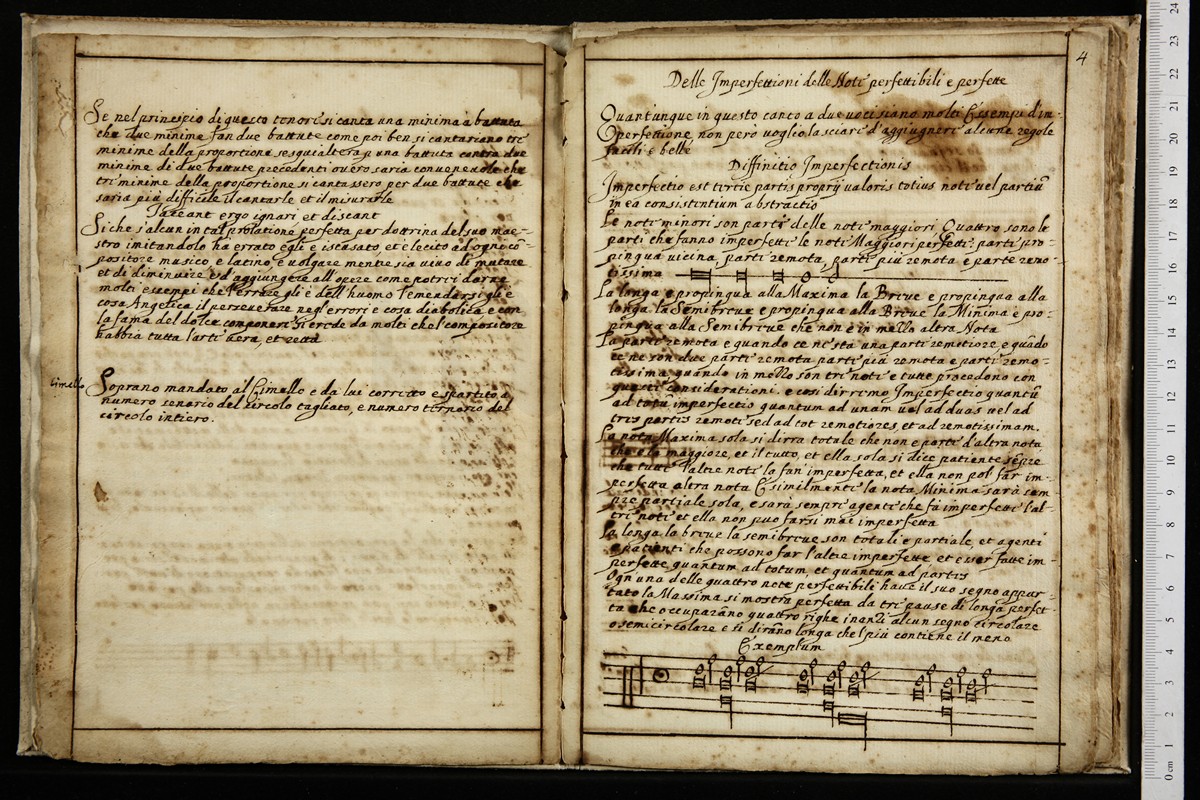 Se nel principio di questo tenore si canta una minima à battuta
che due minime fan due battute come poi ben si cantariano tre
minime della proportione sesquialtera p una battuta contra due
minime di due battute precedenti overo saria convenevole che
tre minime della proportione si cantassero per due battute che
saria piu difficile il cantarle et il misurarle
Taceant ergo ignari et discant
Si che s'alcun in tal prolatione perfetta per dottrina del suo mae-
stro imitandolo ha errato egli è iscusato et è lecito ad ogni cõ-
positore musico, e latino, e volgare mentre sia vivo di mutare
et di diminuire ed'aggiungere all'opere come potrei darne
molti essempi che l'errare gli è dell'huomo l'emendarsi gli è
cosa Angelica il perseverare negl'errori è cosa diabolica e con
la fama del dolce componere si crede da molti che'l compositore
habbia tutta l'arte vera, et retta
Cimello
Soprano mandato al Cimello e da lui corretto e spartito à
numero senario del circolo tagliato, e numero ternario del
circolo intiero.
4
Delle Imperfettioni delle Note perfettibili e perfette
Quantunque in questo canto a due voci siano molti Essempi d'im-
perfettione non pero voglio lasciare d'aggiugnere alcune regole
facili e belle
Diffinitio Imperfectionis
Imperfectio est tertie partis proprij valoris totius note vel partiũ
in ea consistentium abstractio
Le note minori son parte delle note maggiori Quattro sono le
parti che fanno imperfette le note Maggiori perfette. parte pro-
pinqua vicina, parte remota, parte più remota e parte remo-
tissima
La longa è propinqua alla Maxima la Breve è propinqua alla
longa la Semibreve è propinqua alla Breve la Minima è pro-
pinqua alla Semibreve che non è in mezzo altra Nota
La parte remota è quando ce ne sta una parte remotiore, e quãdo
ce ne son due parte remota parte più remota e parte remo-
tissima quando in mezzo son tre note e tutte procedono con
queste considerationi. e cosi dirremo Imperfectio quantũ
ad totũ imperfectio quantum ad unam vel ad duas vel ad
tres partes remote sed ad tot remotiores, et ad remotissimam.
La nota Maxima sola si dirra totale che non è parte d'altra nota
che è la maggiore, et il tutto, et ella sola si dice patiente sẽpre
che tutte l'altre note la fan imperfetta, et ella non pol far im-
perfetta altra nota E similmente la nota Minima sarà sem
pre partiale sola, e sarà sempre agente che fà imperfette l'al-
tre note et ella non puo farsi mai imperfetta
La longa la breve la semibreve son totali e partiale, et agenti
e patienti che possono far l'altre imperfette et esser fatte im-
perfette quantum ad totum, et quantum ad partes
Ogn'una delle quattro note perfettibili have il suo segno appar-
tato la Massima si mostra perfetta da tre pause di longa perfet-
ta che occuparãno quattro righe inanzi alcun segno circolare
o semicircolare e si dirãno longa che'l più contiene il meno
Exemplum